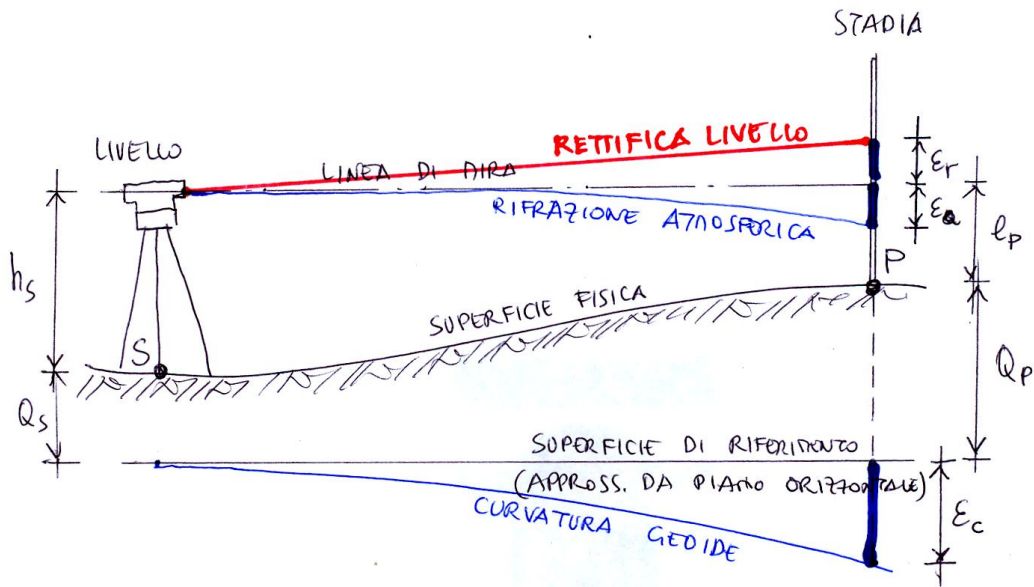 STADIA
RETTIFICA LIVELLO
LIVELLO
LINEA DI MIRA
εr
RIFRAZIONE ATMOSFERICA
εa
lP
hS
P
SUPERFICIE FISICA
S
QS
QP
SUPERFICIE DI RIFERIMENTO
(APPROSS. DA PIANO ORIZZONTALE)
CURVATURA GEOIDE
εc